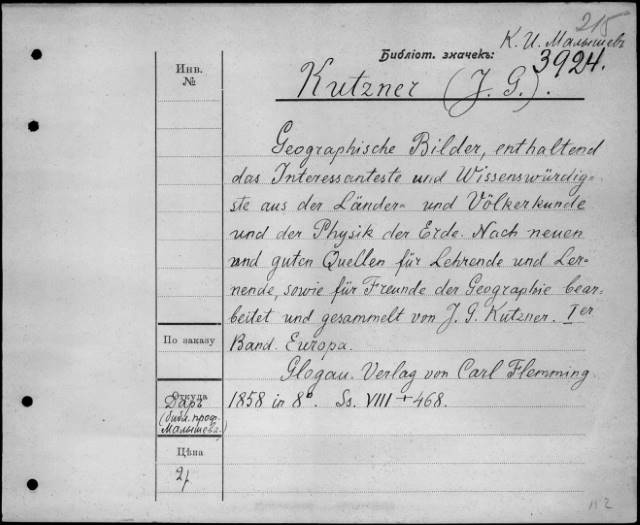 215
К. И. Малышевъ
Библіот. значекъ:
3924.
Инв.
№
Kutzner (J. G.).
Geographische Bilder, enthaltend
das Interessanteste und Wissenswürdig-
ste aus der Länder- und Völkerkunde
und der Physik der Erde. Nach neuen
und guten Quellen für Lehrende und Ler-
nende, sowie für Freunde der Geographie bear-
beitet und gesammelt von J. G. Kutzner. Ier
Band. Europa.
Glogau. Verlag von Carl Flemming.
1858 in 8º. Ss. VIII + 468.
По заказу
Откуда
Даръ
(библ. проф.
Малышева.)
Цѣна
2р